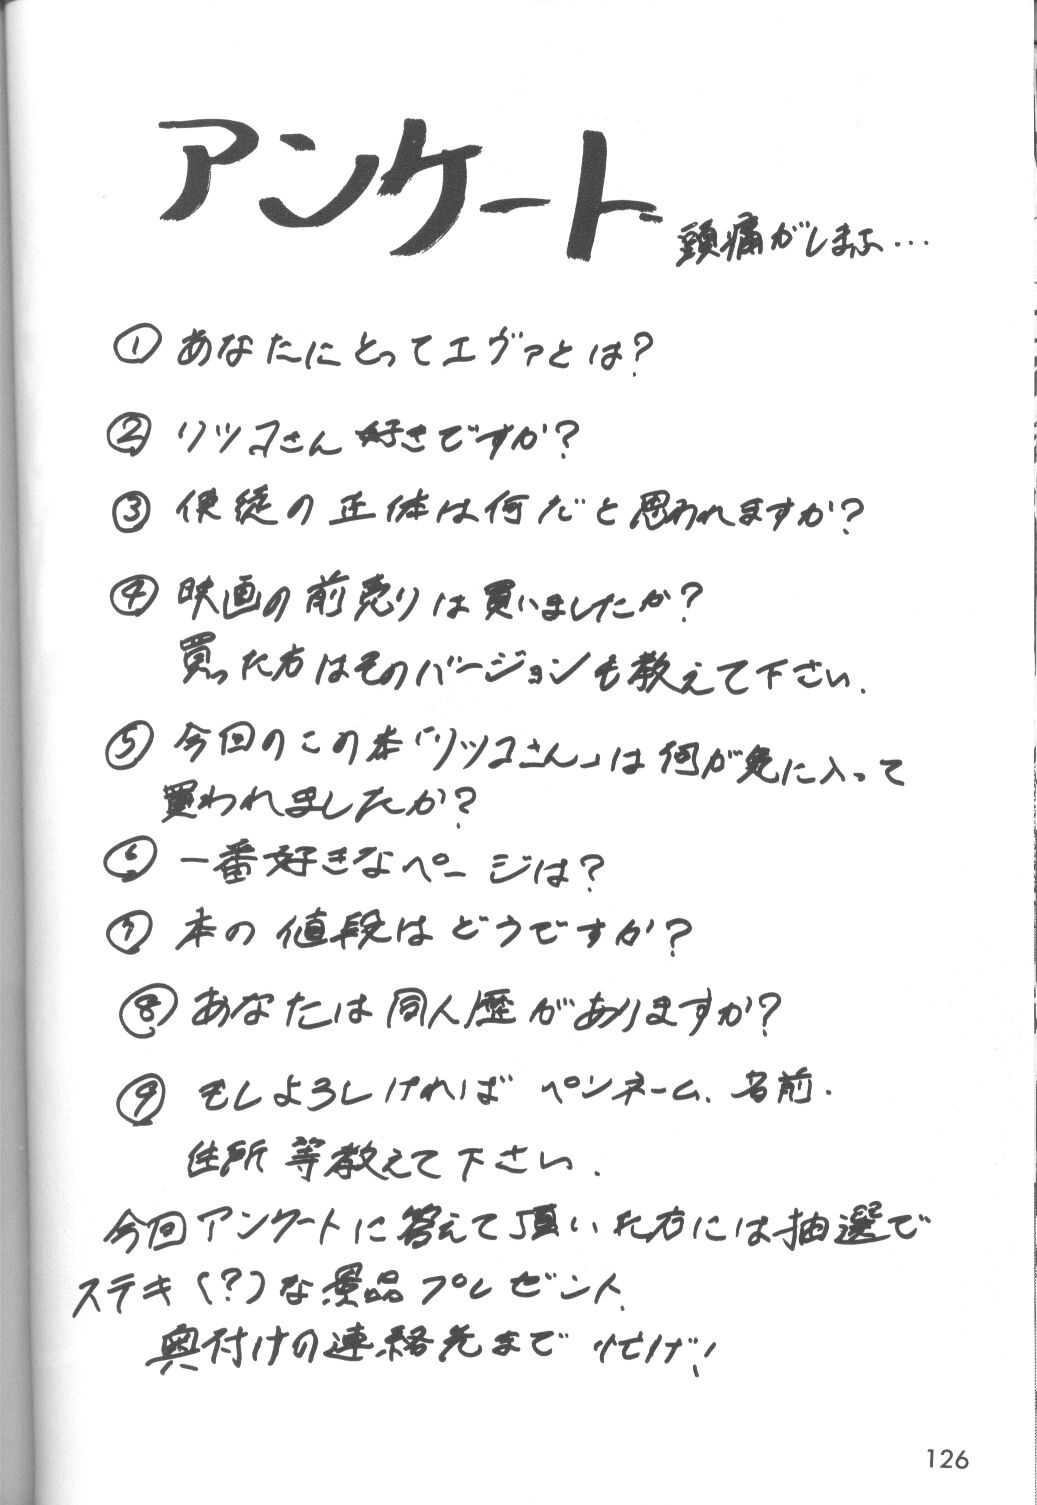 アンケート
頭痛がしまふ…
① あなたにとってエヴァとは？
② リツコさん好きですか？
③ 使徒の正体は何だと思われますか？
④ 映画の前売りは買いましたか？
買った方はそのバージョンも教えて下さい.
⑤ 今回のこの本「リツコさん」は何が気に入って
買われましたか？
⑥ 一番好きなページは？
⑦ 本の値段はどうですか？
⑧ あなたは同人歴がありますか？
⑨ もしよろしければ ペンネーム、名前.
住所等教えて下さい.
今回アンケートに答えて頂いた方には抽選で
ステキ(？)な景品プレゼント.
奥付けの連絡先まで
126